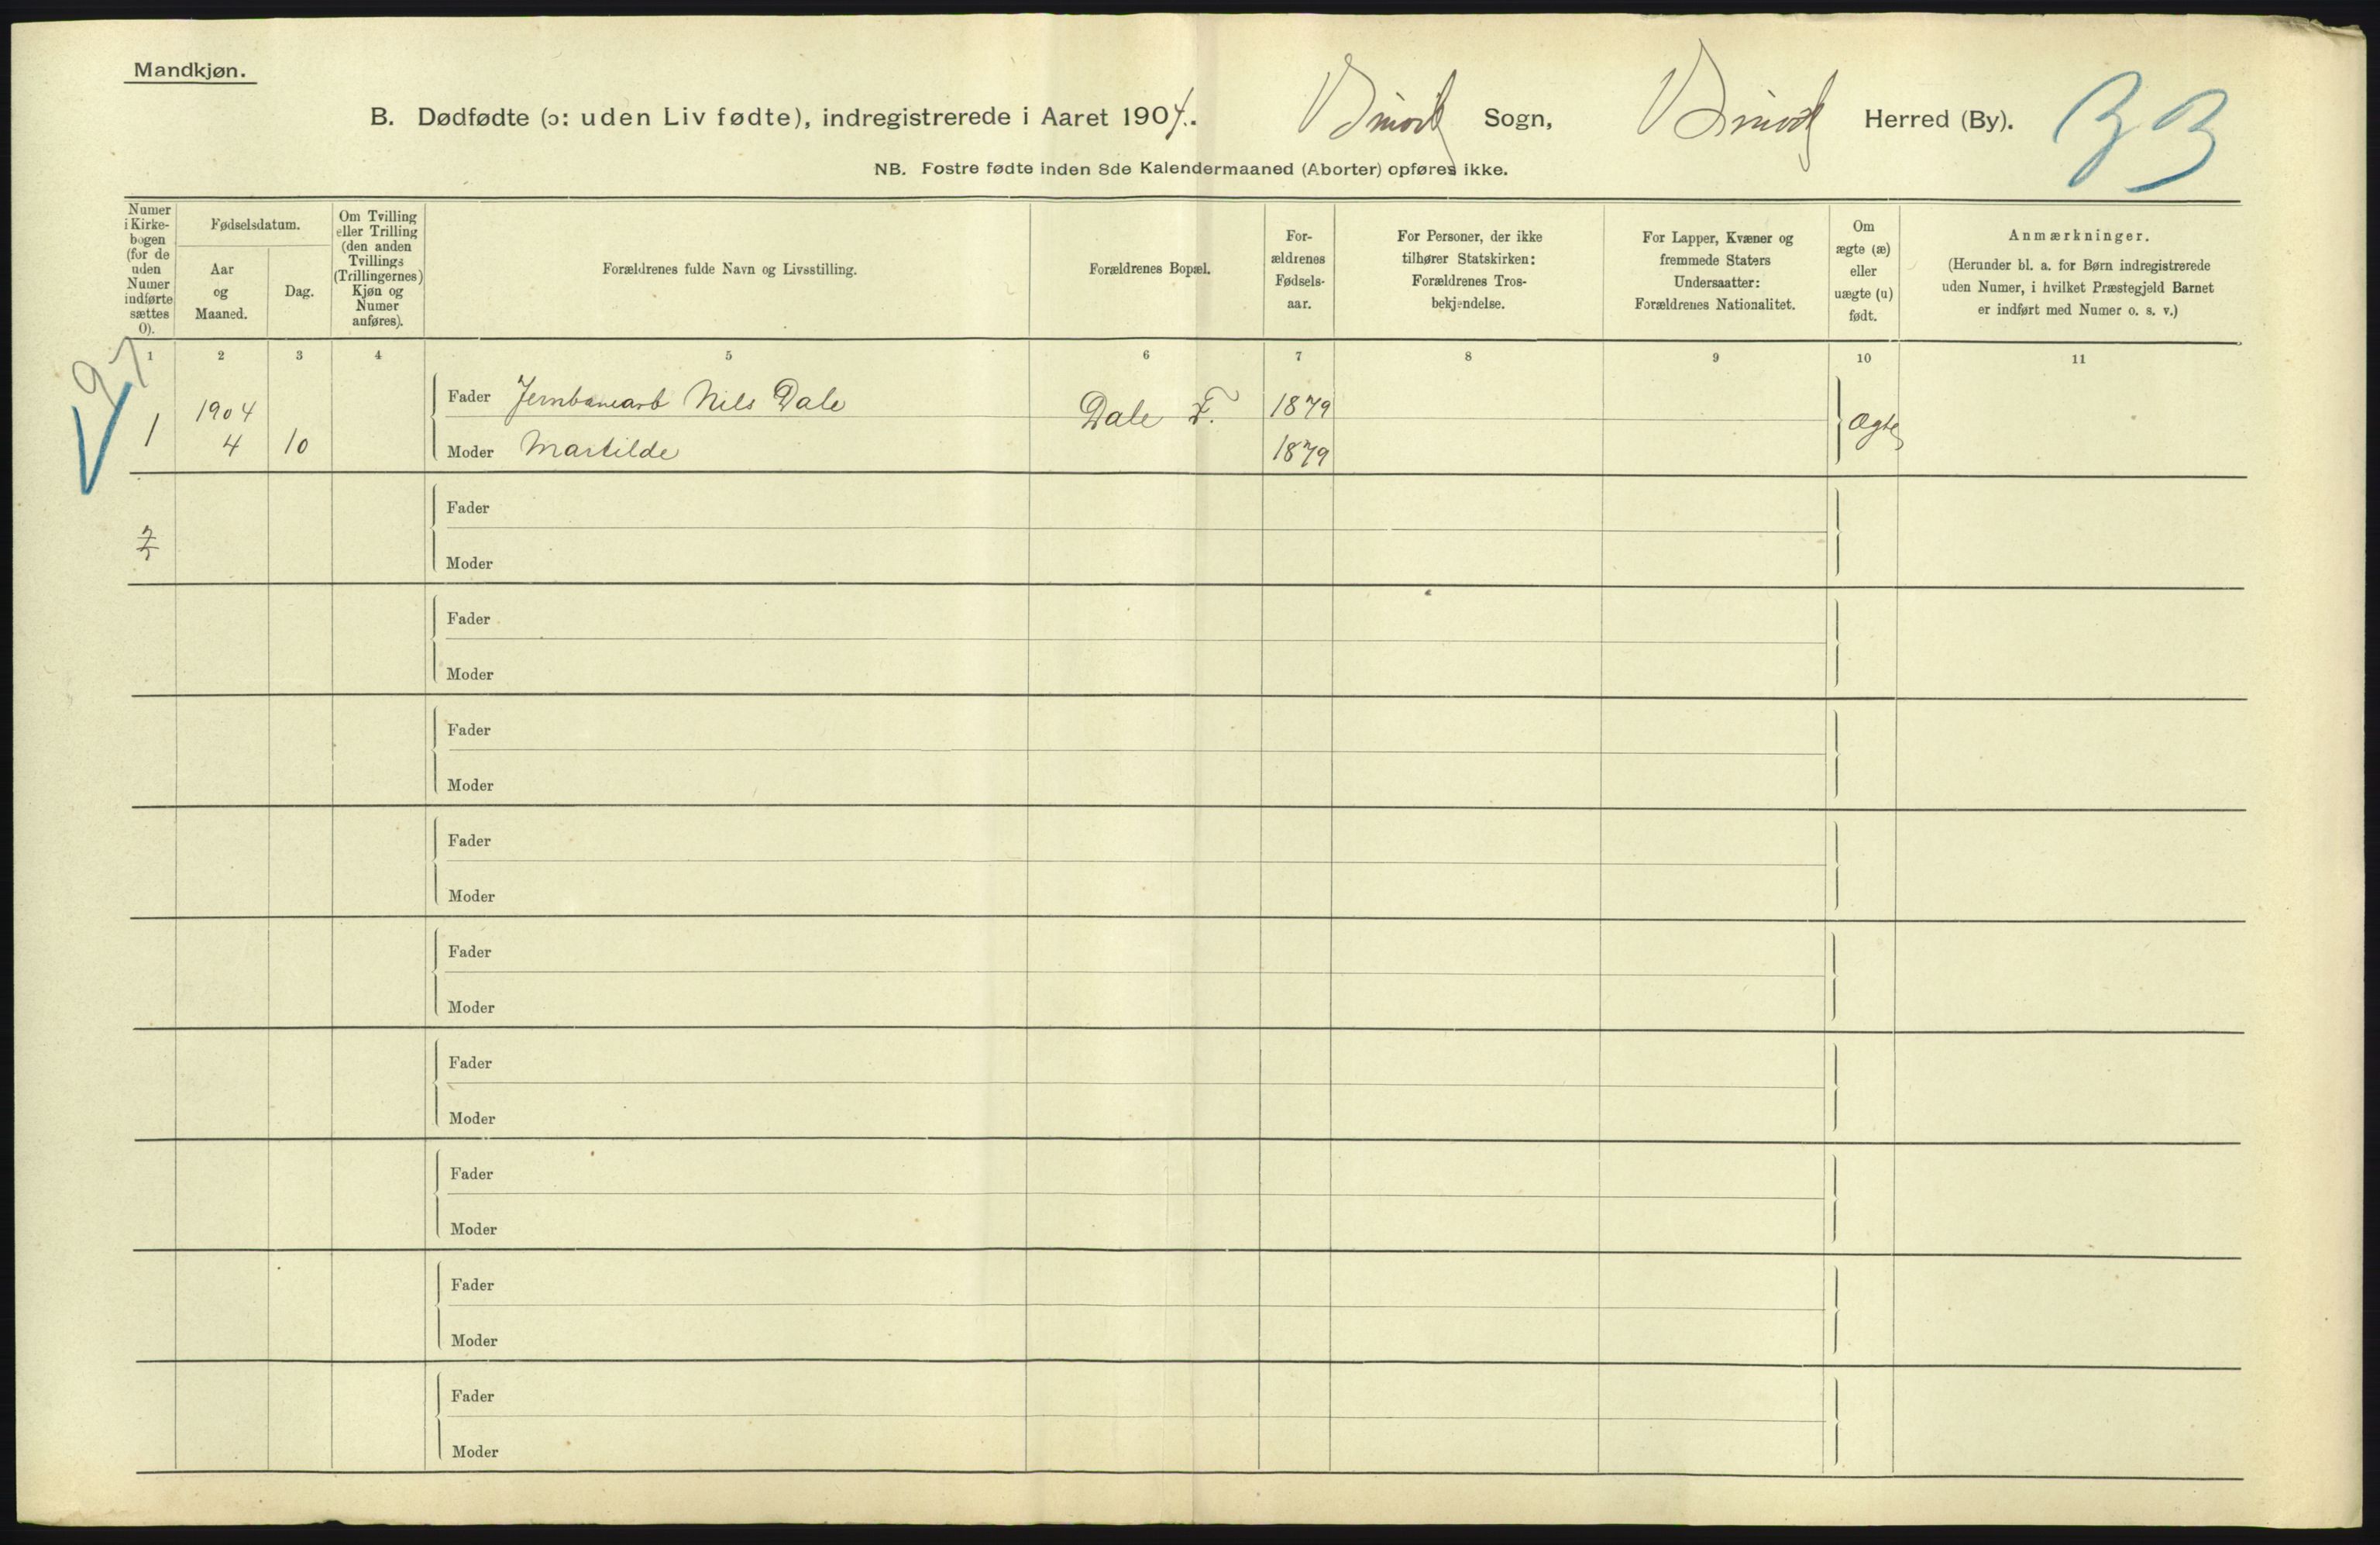 Mandkjøn.
B. Dødfødte (ɔ: uden Liv fødte), indregistrerede i Aaret 1904. Sogn, Herred (By). 33
NB. Fostre fødte inden 8de Kalendermaaned (Aborter) opføres ikke.
Numer i Kirke-bogen (for de uden Numer indførte sættes 0).
Fødselsdatum.
Aar og Maaned.
Dag.
Om Tvilling eller Trilling (den anden Tvillings (Trillingernes) Kjøn og Numer anføres).
Forældrenes fulde Navn og Livsstilling.
Forældrenes Bopæl.
For-ældrenes Fødsels-aar.
For Personer, der ikke tilhører Statskirken: Forældrenes Tros-bekjendelse.
For Lapper, Kvæner og fremmede Staters Undersaatter: Forældrenes Nationalitet.
Om ægte (æ) eller uægte (u) født.
Anmærkninger.
(Herunder bl. a. for Børn indregistrerede uden Numer, i hvilket Præstegjeld Barnet er indført med Numer o. s. v.)
1 2 3 4 5 6 7 8 9 10 11
1 1904 4 10 Fader Jernbanearb Nils Dale Dale F. 1879 Ægte
Moder Martilde 1879
Fader
Moder
Fader
Moder
Fader
Moder
Fader
Moder
Fader
Moder
Fader
Moder
Fader
Moder
Fader
Moder
Fader
Moder